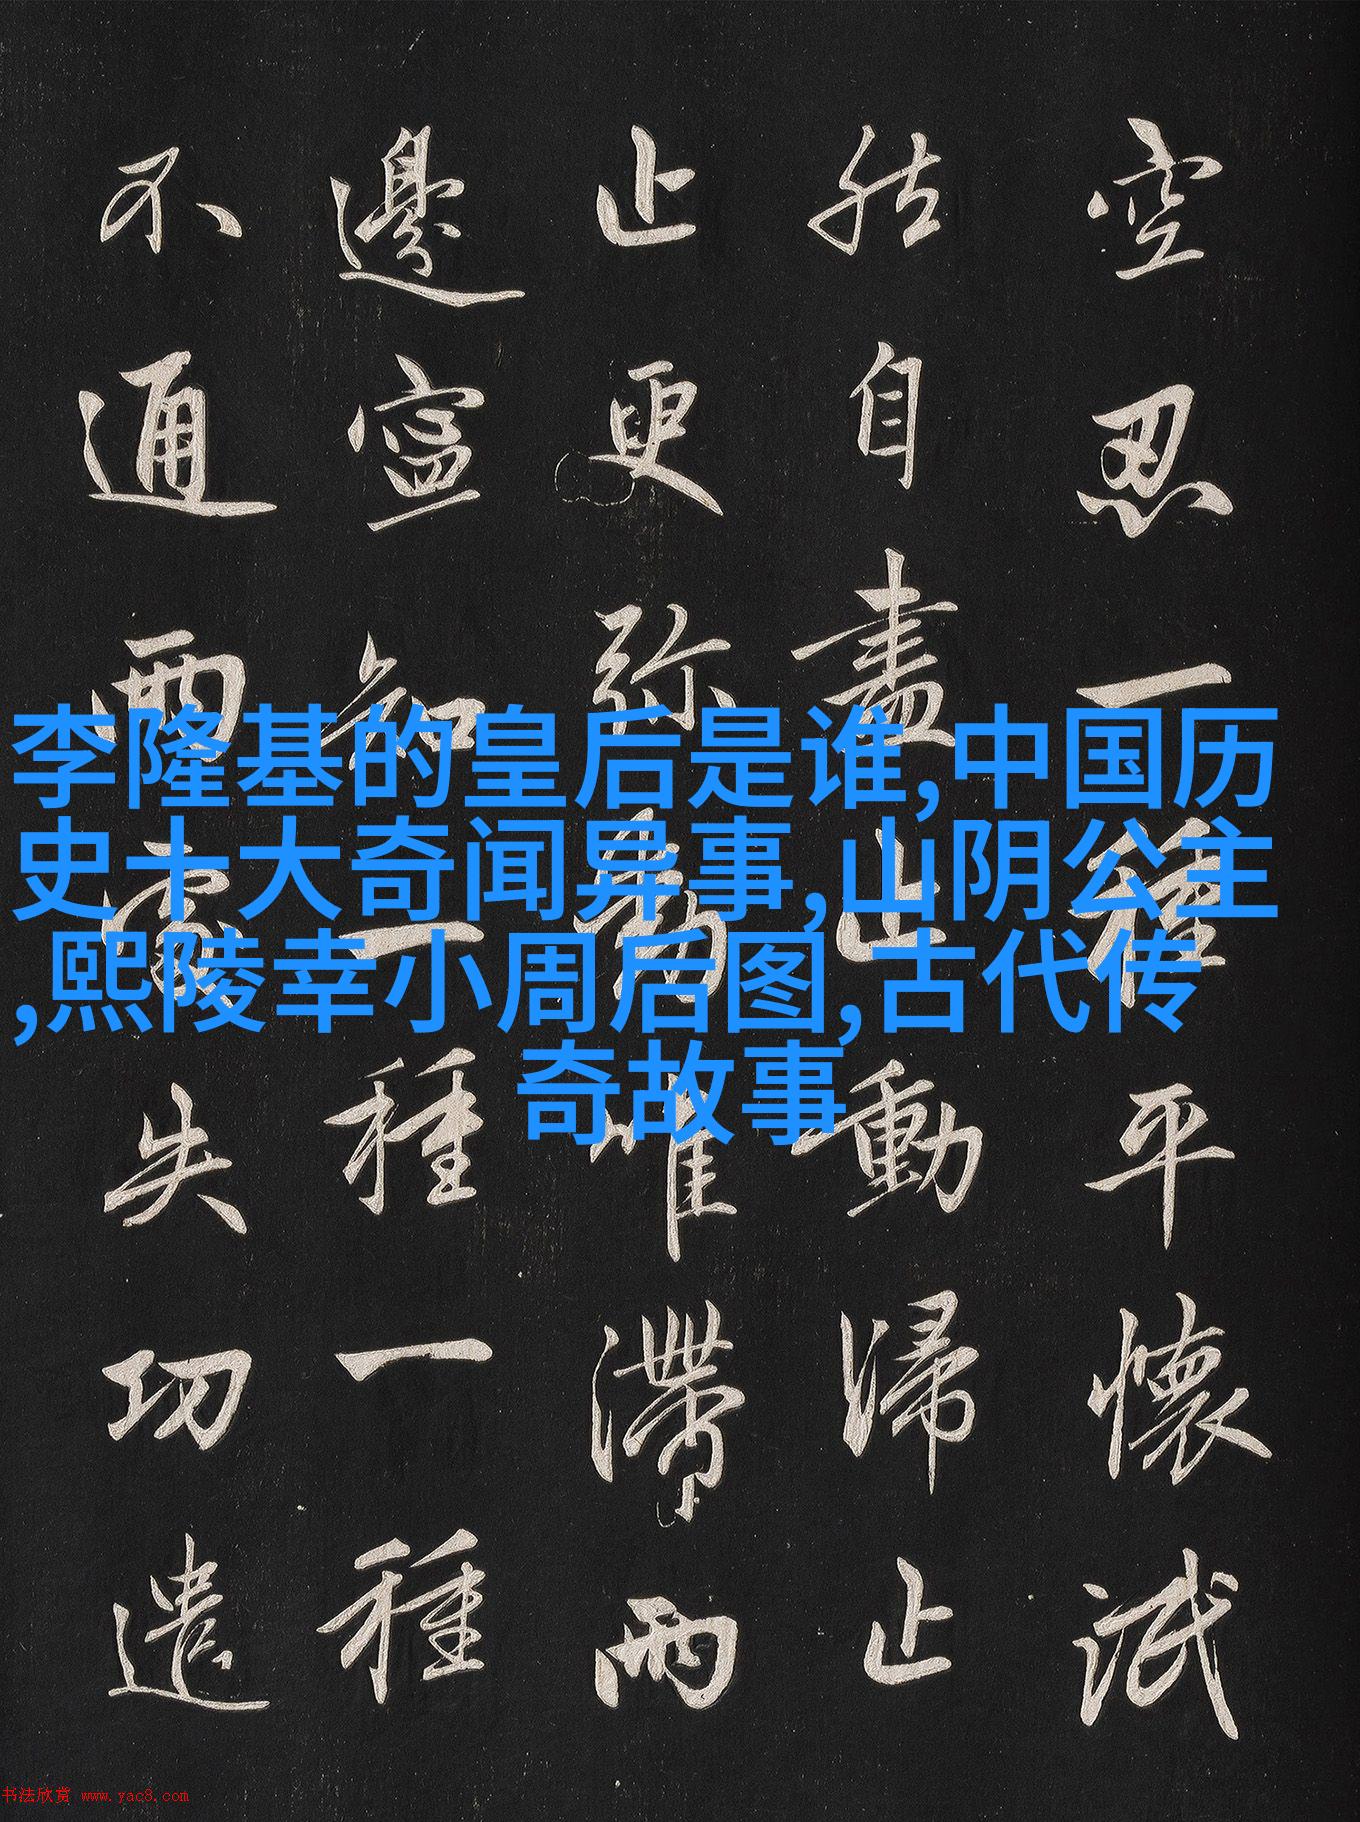 空忍一種平懷泯
然自盡止動歸止
止更弥動唯滯兩
邊寧知一種一種
不通兩處失功遣
李隆基的皇后是谁,中国历
史十大奇闻异事,山阴公主
,熙陵幸小周后图,古代传
奇故事
书法欣赏 www.yac8.com